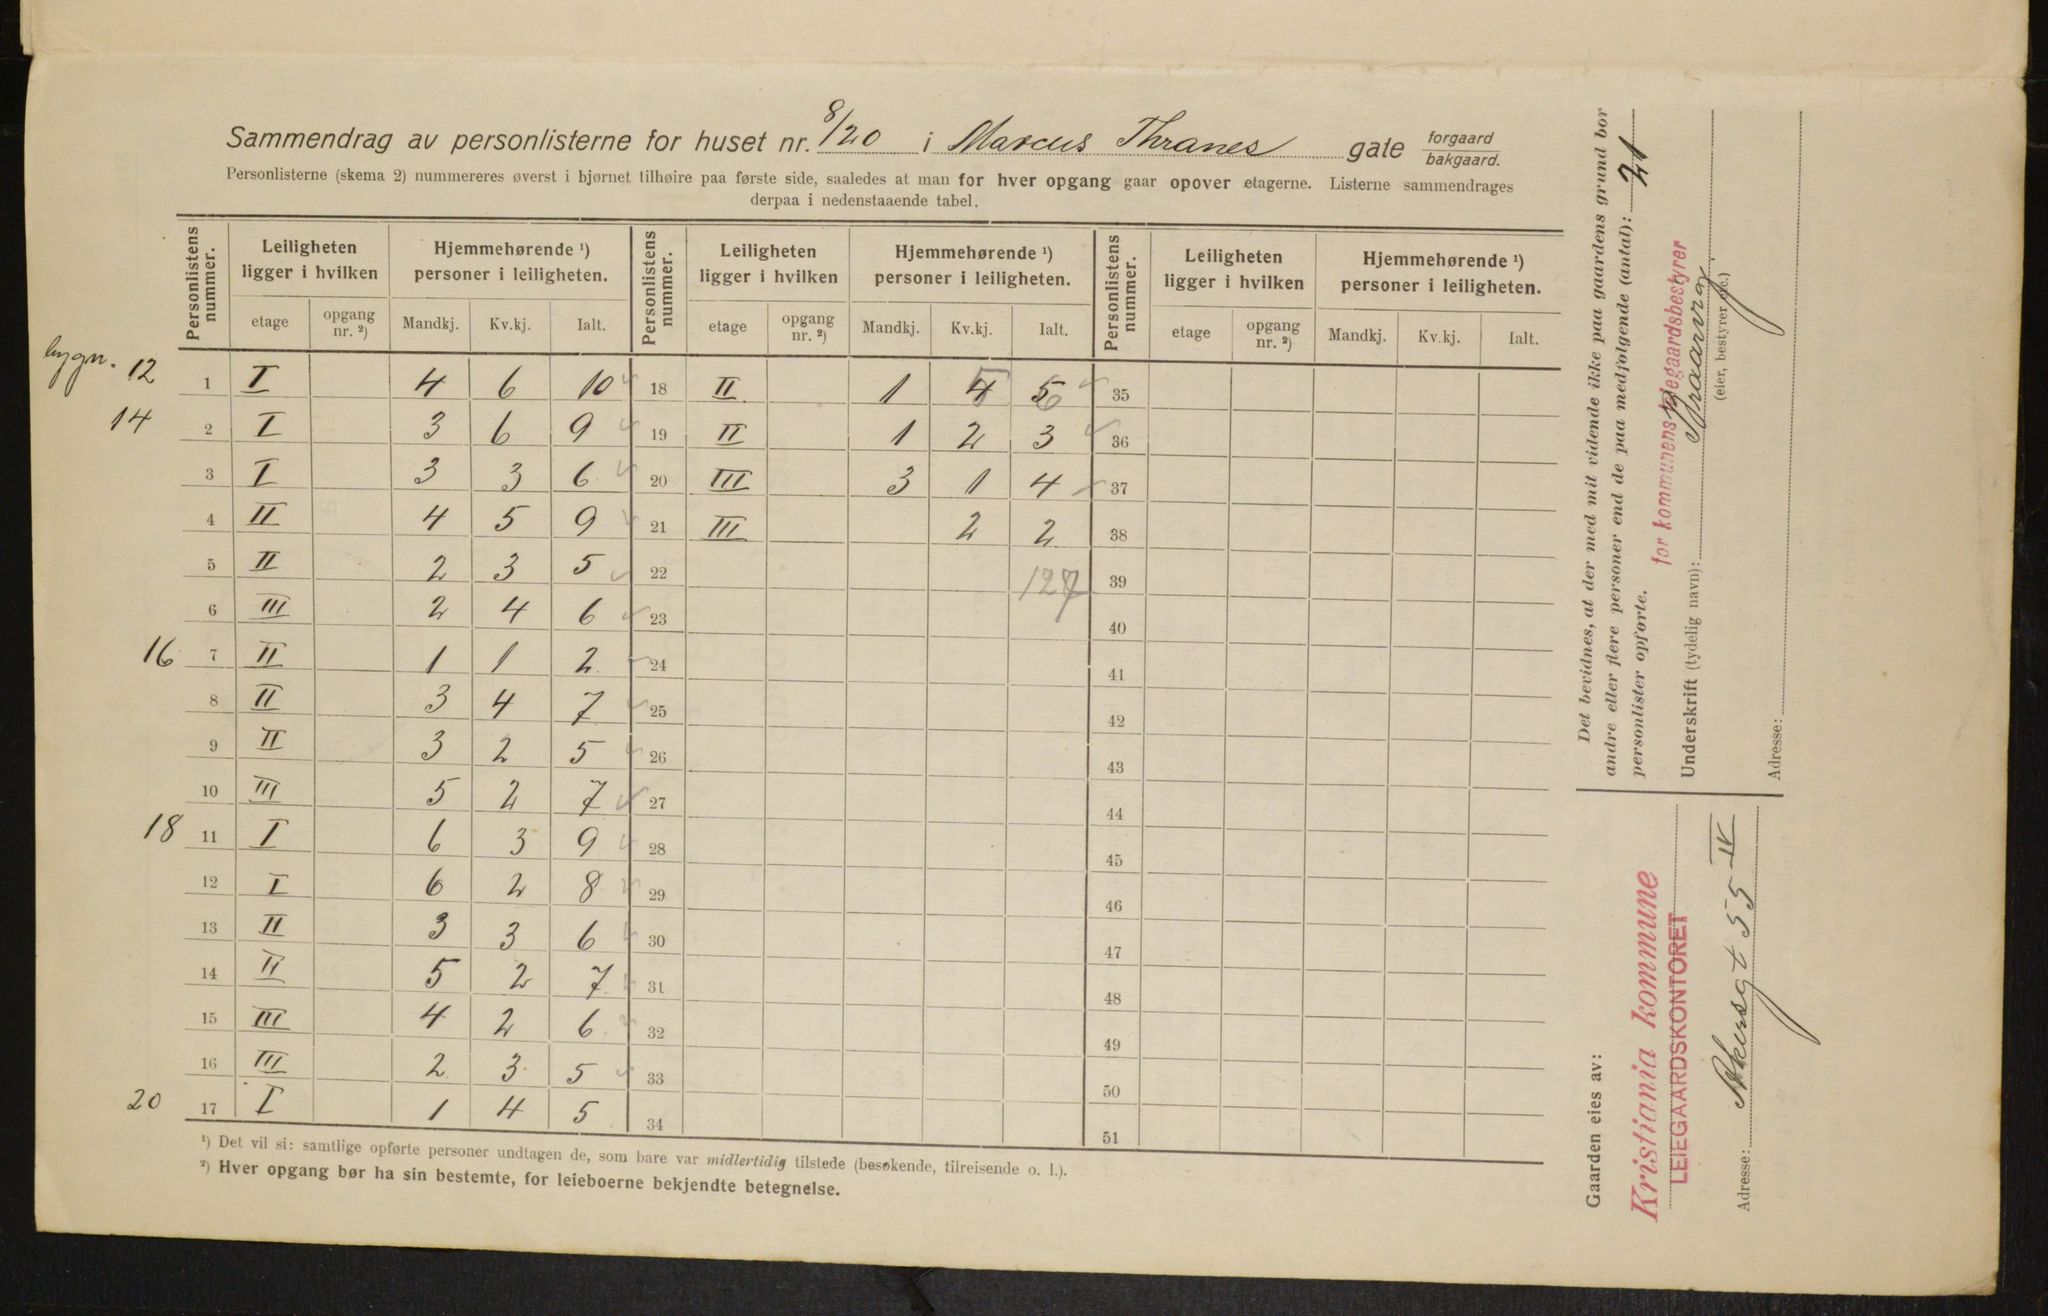 Sammendrag av personlisterne for huset nr. 8/20 i Marcus Thranes gate forgaard
bakgaard.
Personlisterne (skema 2) nummereres øverst i hjørnet tilhøire paa første side, saaledes at man for hver opgang gaar opover etagerne. Listerne sammendrages
derpaa i nedenstaaende tabel.
Personlistens nummer. Leiligheten ligger i hvilken Hjemmehørende ¹) personer i leiligheten. Personlistens nummer. Leiligheten ligger i hvilken Hjemmehørende ¹) personer i leiligheten. Personlistens nummer. Leiligheten ligger i hvilken Hjemmehørende ¹) personer i leiligheten.
etage opgang nr. ²) Mandkj. Kv.kj. Ialt. etage opgang nr. ²) Mandkj. Kv.kj. Ialt. etage opgang nr. ²) Mandkj. Kv.kj. Ialt.
bygn. 12 1 I 4 6 10 18 II 1 4 5 5 6 35
14 2 I 3 6 9 19 II 1 2 3 36
3 I 3 3 6 20 III 3 1 4 37
4 II 4 5 9 21 III 2 2 38
5 II 2 3 5 22 127 39
6 III 2 4 6 23 40
16 7 II 1 1 2 24 41
8 II 3 4 7 25 42
9 II 3 2 5 26 43
10 III 5 2 7 27 44
18 11 I 6 3 9 28 45
12 I 6 2 8 29 46
13 II 3 3 6 30 47
14 II 5 2 7 31 48
15 III 4 2 6 32 49
16 III 2 3 5 33 50
20 17 I 1 4 5 34 51
¹) Det vil si: samtlige opførte personer undtagen de, som bare var midlertidig tilstede (besøkende, tilreisende o. l.).
²) Hver opgang bør ha sin bestemte, for leieboerne bekjendte betegnelse.
Det bevidnes, at der med mit vidende ikke paa gaardens grund bor
andre eller flere personer end de paa medfølgende (antal): 21
personlister opførte.
for kommunens leiegaardsbestyrer
Underskrift (tydelig navn):
(eier, bestyrer etc.)
Adresse:
Gaarden eies av:
Kristiania kommune
LEIEGAARDSKONTORET
Adresse: Akersgt 55 IV